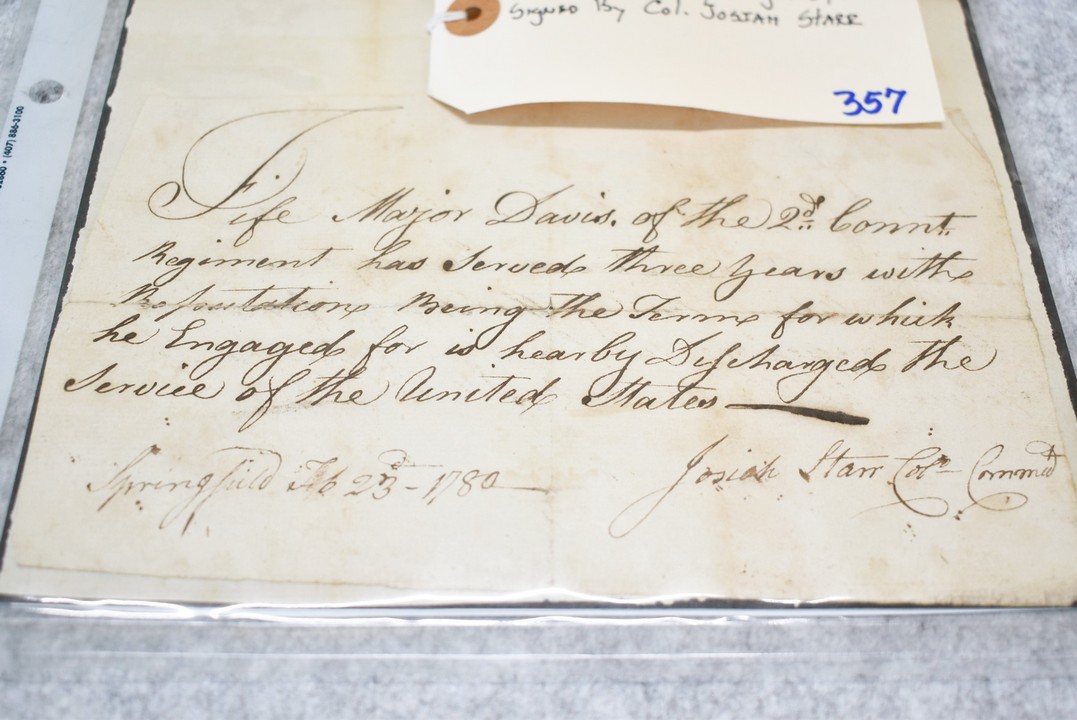 Signed By Col. Josiah Starr
357
(407) 886-3100
Fife Major Davis. of the 2d. Connt.
Regiment has Served three Years with
Reputation Being the Term for which
he Engaged for is hearby Discharged the
Service of the United States
Springfield Feb 23d - 1780
Josiah Starr Col. Commdt